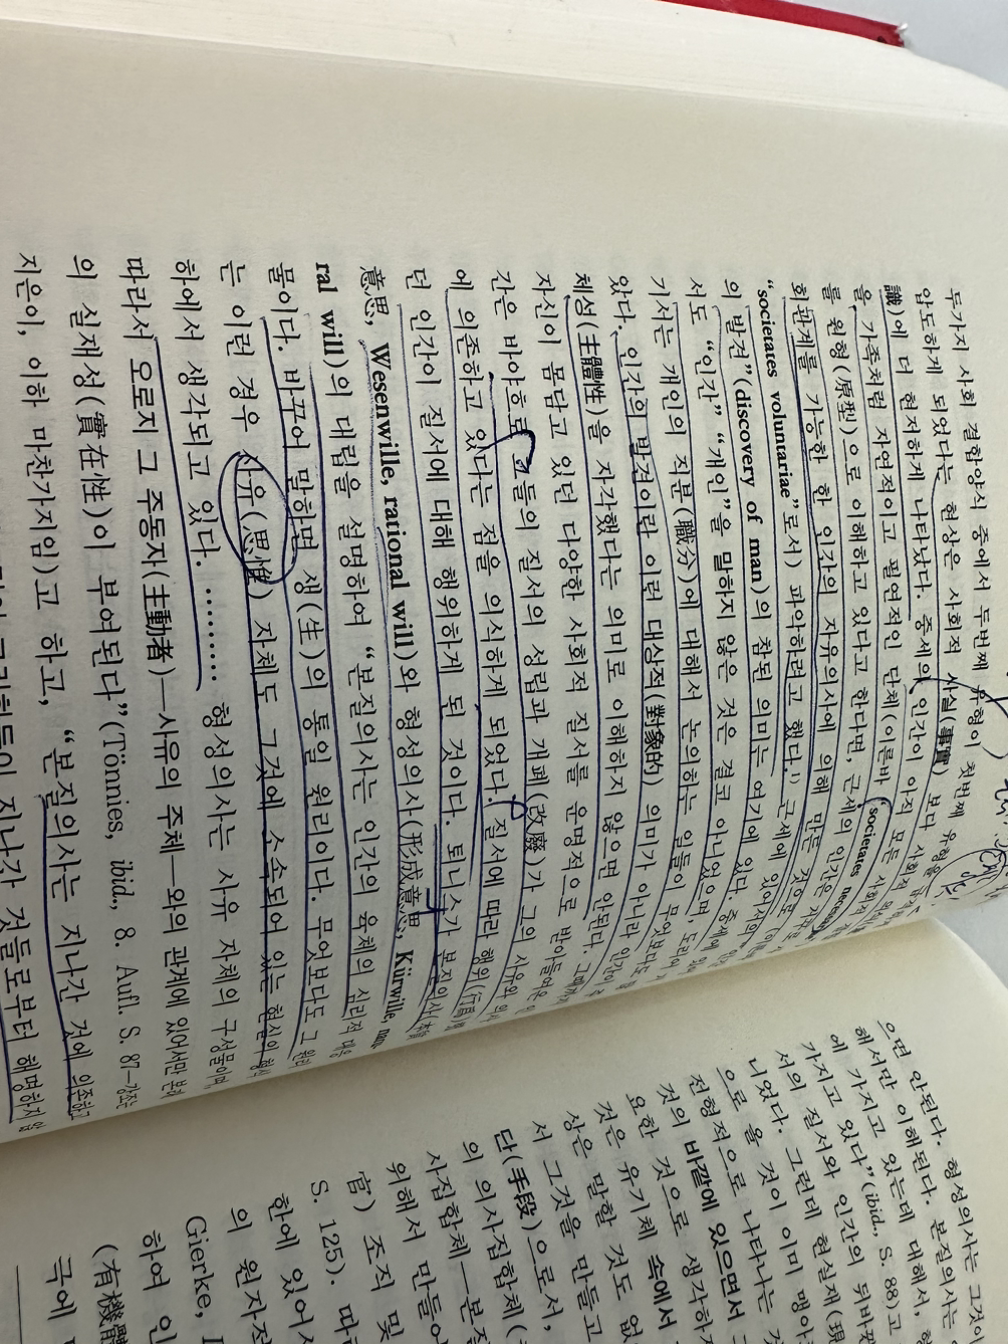 두가지 사회 결합양식 중에서 두번째 유형이 첫번째 유형을
압도하게 되었다는 현상은 사회적 사실(事實) 보다 사회적
識)에 더 현저하게 나타났다. 중세의 인간이 아직 모든 사회적
을 가족처럼 자연적이고 필연적인 단체(이른바 “societates
를 원형(原型)으로 이해하고 있다고 한다면, 근세의 인간은
회관계를 가능한 한 인간의 자유의사에 의해 만든 것으로
“societates voluntariae”로서) 파악하려고 했다.¹⁾ 근세에 있어서의
의 발견”(discovery of man)의 참된 의미는 여기에 있다. 중세에
서도 “인간” “개인”을 말하지 않은 것은 결코 아니었으며, 도리어
기서는 개인의 직분(職分)에 대해서 논의하는 일들이 무엇보다도
있다. 인간의 발견이란 이런 대상적(對象的) 의미가 아니라 인간이
체성(主體性)을 자각했다는 의미로 이해하지 않으면 안된다. 그때까지
자신이 몸담고 있던 다양한 사회적 질서를 운명적으로 받아들여온
간은 바야흐로 그들의 질서의 성립과 개폐(改廢)가 그의 사유와
에 의존하고 있다는 점을 의식하게 되었다. 질서에 따라 행위(行爲)
던 인간이 질서에 대해 행위하게 된 것이다. 퇴니스가 본질의사(本質
意思, Wesenwille, rational will)와 형성의사(形成意思, Kürwille,
ral will)의 대립을 설명하여 “본질의사는 인간의 육체의 심리적 대응
물이다. 바꾸어 말하면 생(生)의 통일 원리이다. 무엇보다도 그
는 이런 경우 사유(思惟) 자체도 그것에 소속되어 있는 현실의 형식
하에서 생각되고 있다. ……… 형성의사는 사유 자체의 구성물이며
따라서 오로지 그 주동자(主動者)—사유의 주체—와의 관계에 있어서만 본래
의 실재성(實在性)이 부여된다”(Tönnies, ibid., 8. Aufl. S. 87—강조는
지은이, 이하 마찬가지임)고 하고, “본질의사는 지나간 것에 의존하고
지나간 것들로부터 해명하지 않
으면 안된다. 형성의사는 그것이
해서만 이해된다. 본질의사는
에 가지고 있는데 대해서,
가지고 있다”(ibid., S. 88)고
서의 질서와 인간의 뒤바뀐
니었다. 그런데 현실재(現
으로 올 것이 이미 맹아
전형적으로 나타나는
것의 바깥에 있으면서
요한 것으로 생각하
것은 유기체 속에서
상은 말할 것도 없
서 그것을 만들고
단(手段)으로서,
의 의사집합체(
사집합체—본질
위해서 만들어
官) 조직 및
S. 125). 따
한에 있어서
의 원자
Gierke,
하여 인
(有機體
극에